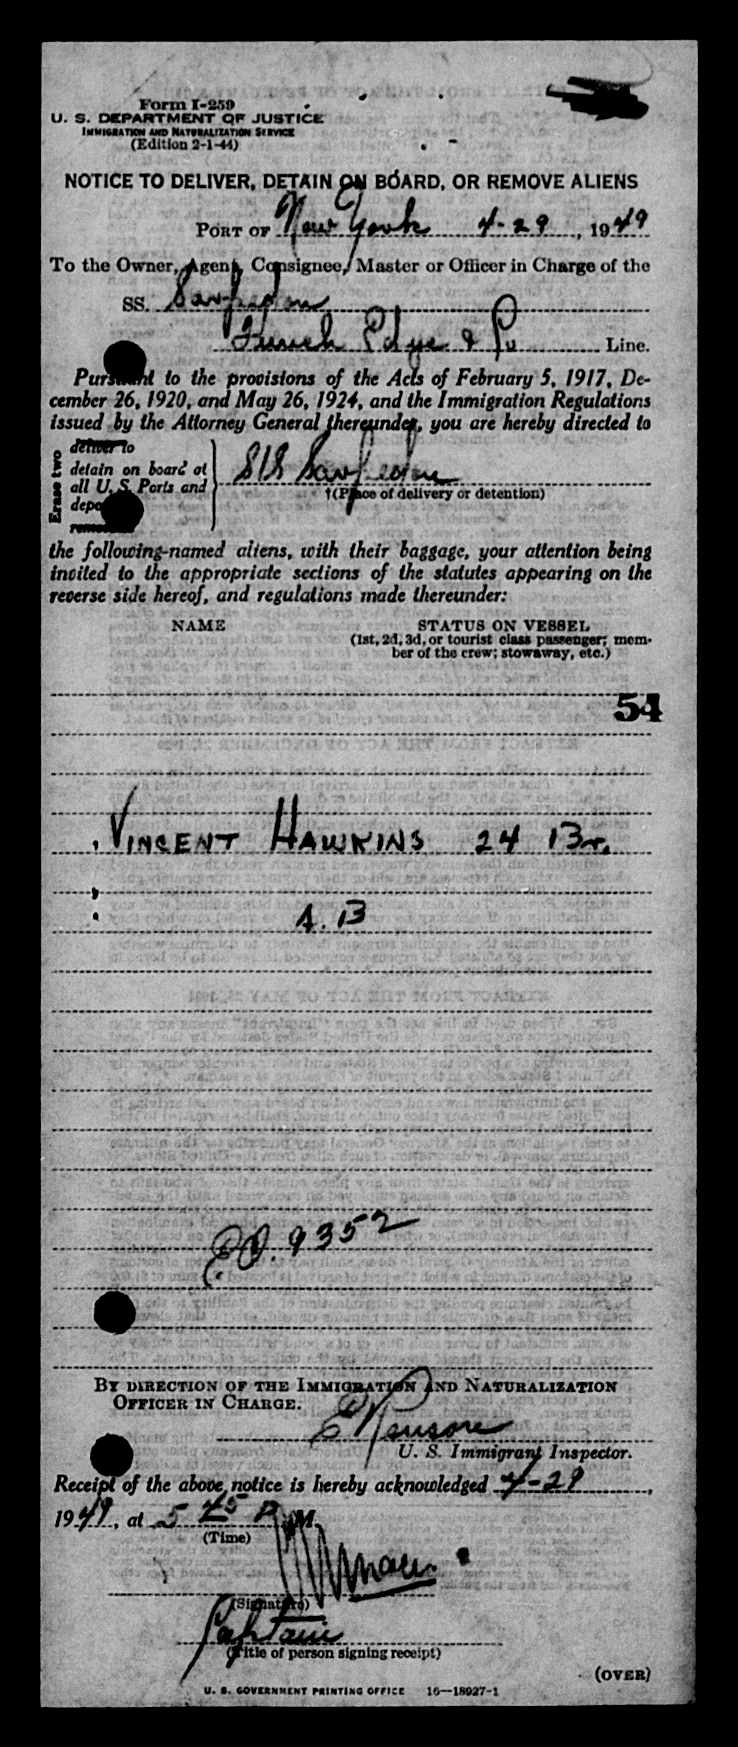 Form I-259
U. S. DEPARTMENT OF JUSTICE
IMMIGRATION AND NATURALIZATION SERVICE
(Edition 2-1-44)
NOTICE TO DELIVER, DETAIN ON BOARD, OR REMOVE ALIENS
PORT OF New York 4-29, 1949
To the Owner, Agent, Consignee, Master or Officer in Charge of the
SS.
Funch Edye & Co Line.
Pursuant to the provisions of the Acts of February 5, 1917, De-
cember 26, 1920, and May 26, 1924, and the Immigration Regulations
issued by the Attorney General thereunder, you are hereby directed to
Erase two
deliver to
detain on board at
all U. S. Ports and
SIS
†(Place of delivery or detention)
the following-named aliens, with their baggage, your attention being
invited to the appropriate sections of the statutes appearing on the
reverse side hereof, and regulations made thereunder:
NAME STATUS ON VESSEL
(1st, 2d, 3d, or tourist class passenger; mem-
ber of the crew; stowaway, etc.)
54
VINCENT HAWKINS 24 Br.
A. B
P.O. 9352
BY DIRECTION OF THE IMMIGRATION AND NATURALIZATION
OFFICER IN CHARGE.
U. S. Immigrant Inspector.
Receipt of the above notice is hereby acknowledged 4-29,
1949, at 5 45 P.M.
(Time)
(Signature)
Captain
(Title of person signing receipt)
(OVER)
U. S. GOVERNMENT PRINTING OFFICE 16—18927-1